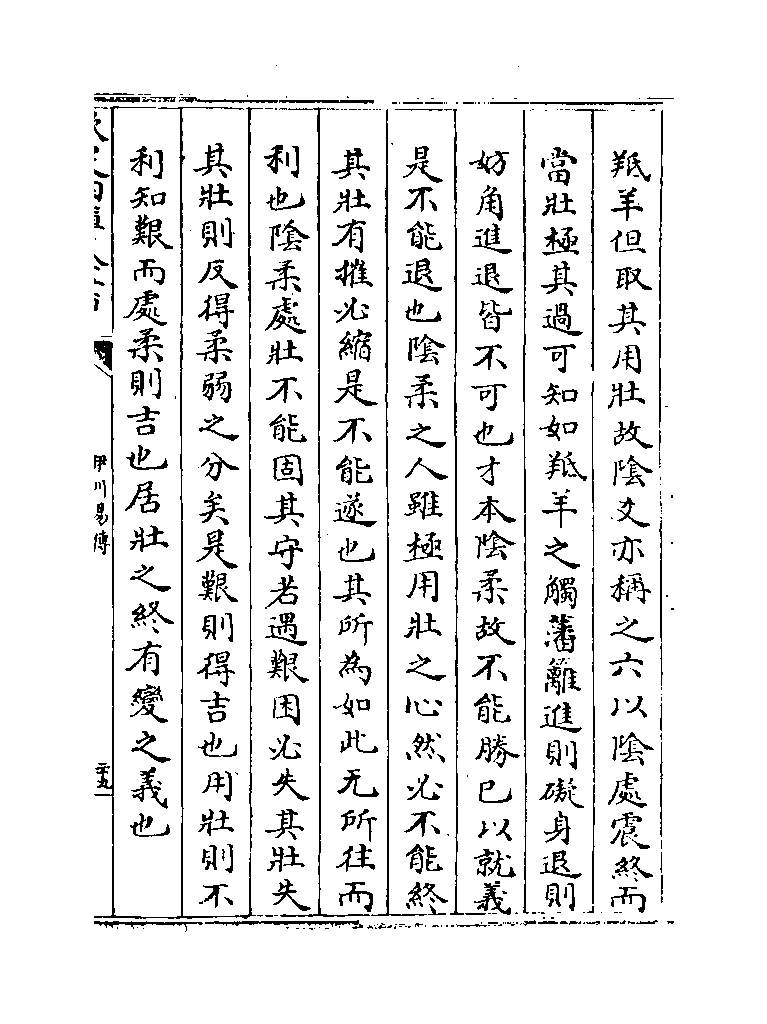 羝羊但取其用壯故陰爻亦稱之六以陰處震終而
當壯極其過可知如羝羊之觸藩籬進則礙身退則
妨角進退皆不可也才本陰柔故不能勝已以就義
是不能退也陰柔之人雖極用壯之心然必不能終
其壯有摧必縮是不能遂也其所為如此无所往而
利也陰柔處壯不能固其守若遇艱困必失其壯失
其壯則反得柔弱之分矣是艱則得吉也用壯則不
利知艱而處柔則吉也居壯之終有變之義也
伊川易傳
二十九